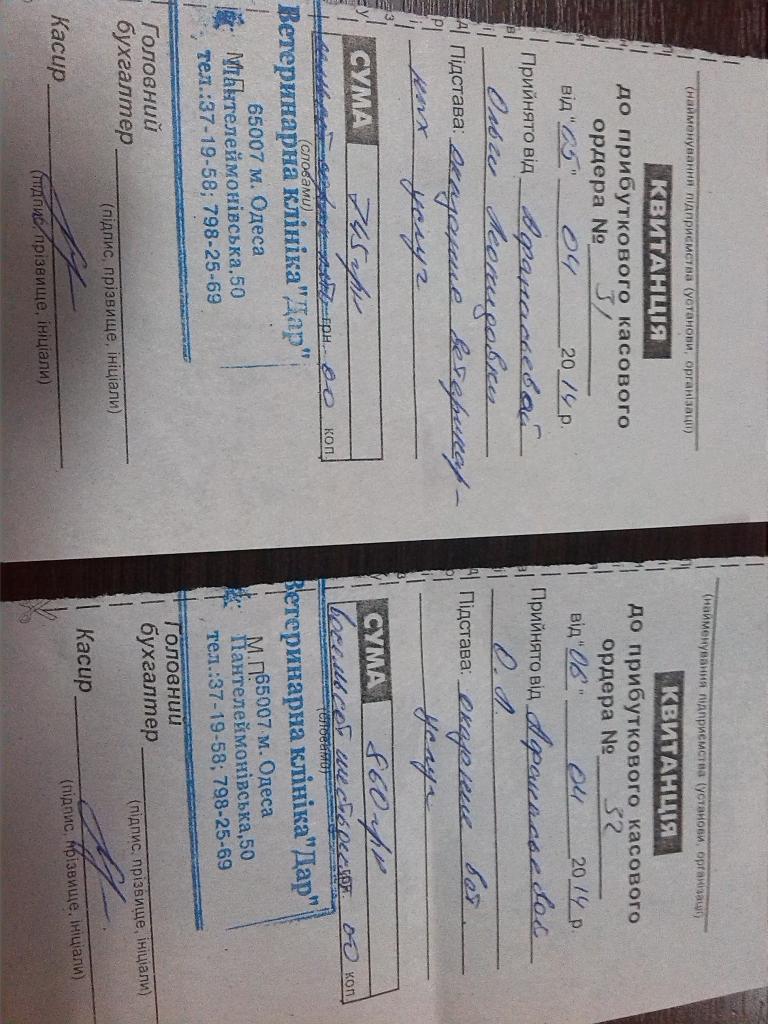 (найменування підприємства (установи, організації)
КВИТАНЦІЯ
до прибуткового касового
ордера № 31
від "05" 04 2014 р.
Прийнято від Афанасьевой
Ольги Леонидовны
Підстава: оказание ветеринар-
ных услуг
СУМА 745 грн
грн. 00 коп.
(словами)
Ветеринарна клініка "Дар"
65007 м. Одеса
М.П.
Пантелеймонівська,50
тел.:37-19-58; 798-25-69
Головний
бухгалтер
(підпис, прізвище, ініціали)
Касир
(підпис, прізвище, ініціали)
(найменування підприємства (установи, організації)
КВИТАНЦІЯ
до прибуткового касового
ордера № 32
від "06" 04 2014 р.
Прийнято від Афанасьевой
О.Л.
Підстава: оказание вет.
услуг
СУМА 860 грн
восемьсот шестьдесят грн. 00 коп.
(словами)
Ветеринарна клініка "Дар"
65007 м. Одеса
М.П.
Пантелеймонівська,50
тел.:37-19-58; 798-25-69
Головний
бухгалтер
(підпис, прізвище, ініціали)
Касир
(підпис, прізвище, ініціали)